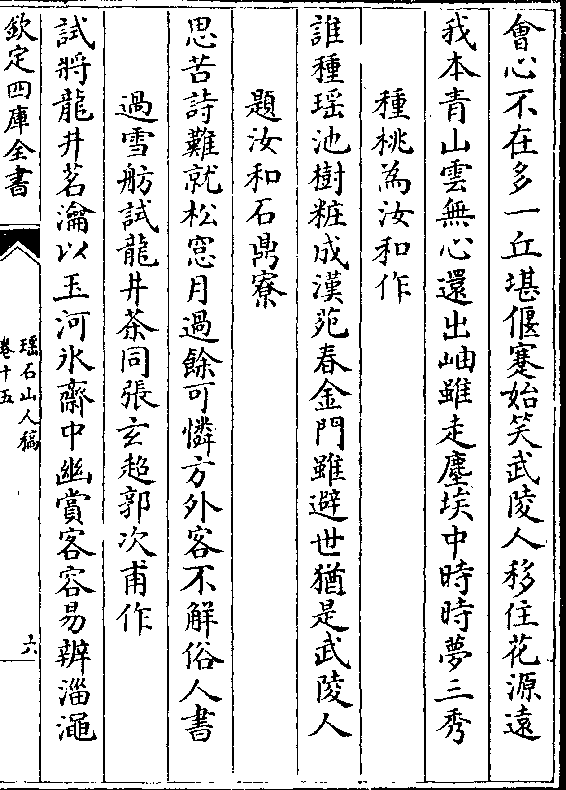 會心不在多一丘堪偃蹇始笑武陵人移住花源遠
我本青山雲無心還出岫雖走塵埃中時時夢三秀
種桃為汝和作
誰種瑶池樹粧成漢苑春金門雖避世猶是武陵人
題汝和石鼎寮
思苦詩難就松窓月過餘可憐方外客不解俗人書
過雪舫試龍井茶同張玄超郭次甫作
試將龍井茗瀹以玉河氷齋中幽賞客容易辨淄澠
欽定四庫全書
瑶石山人稿
卷十五
六